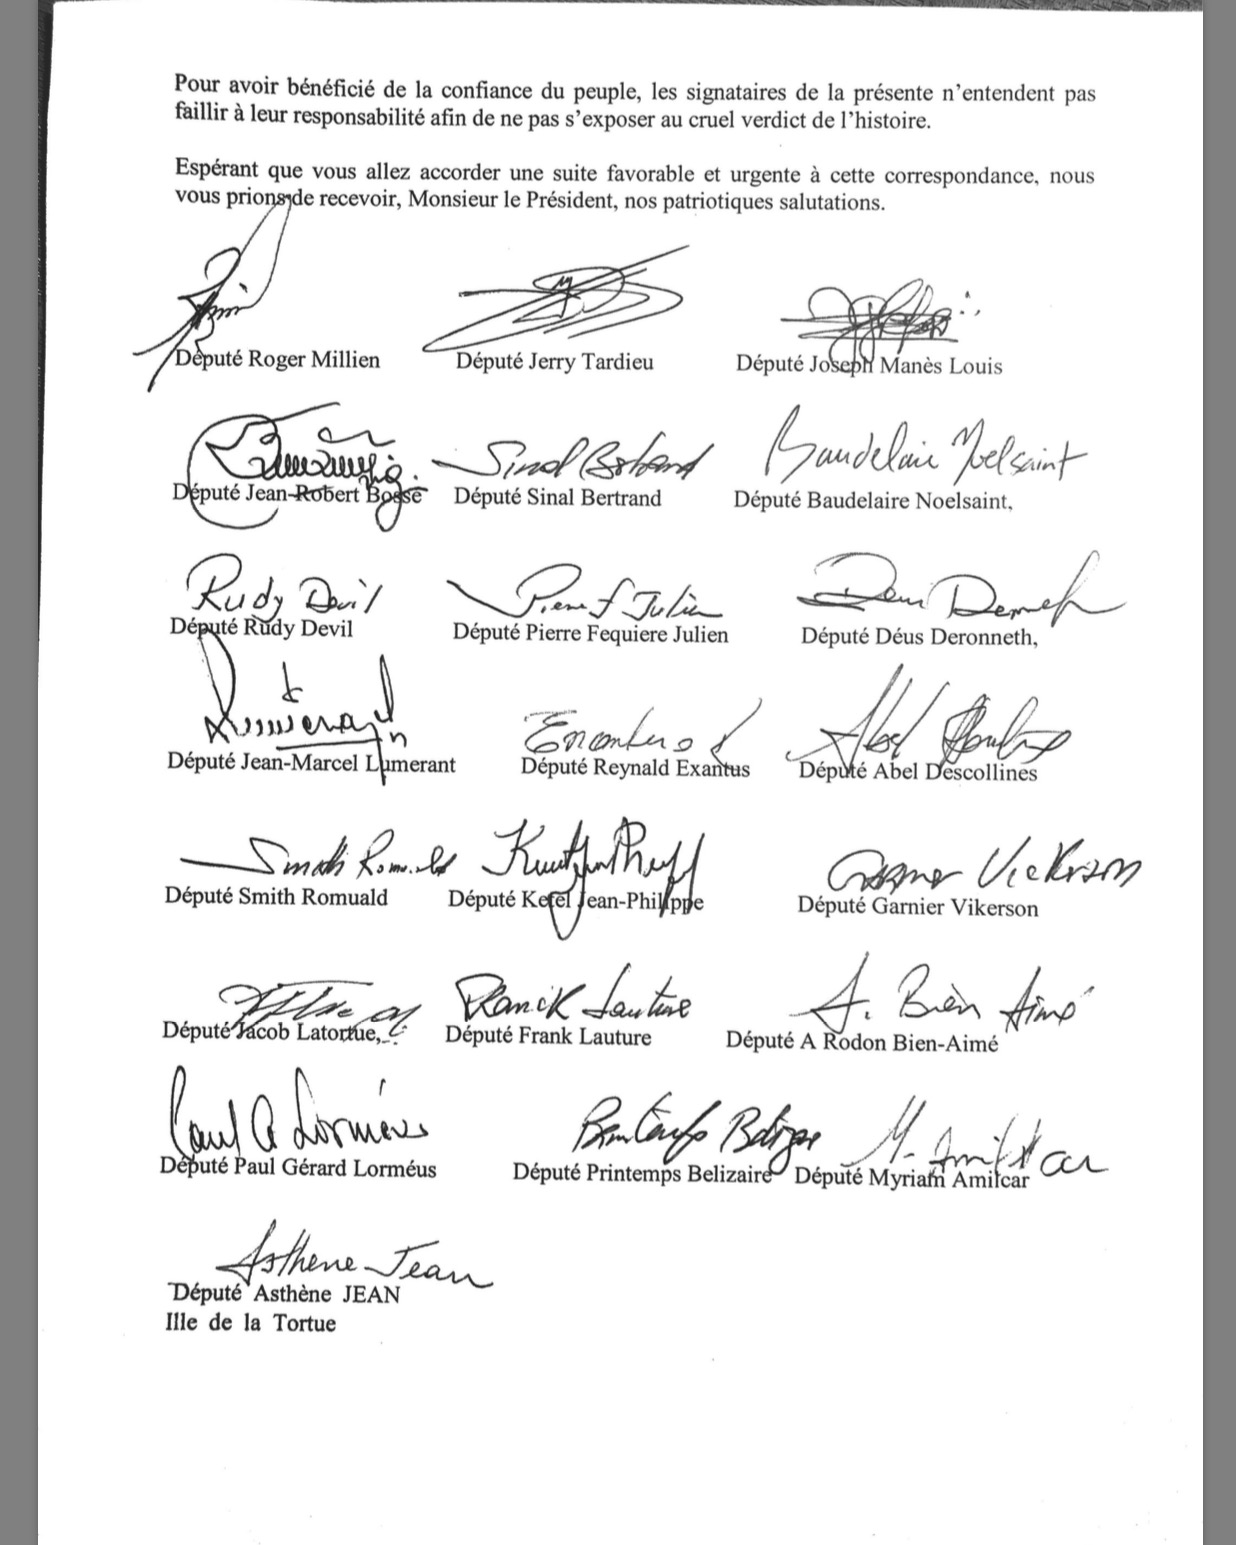 Pour avoir bénéficié de la confiance du peuple, les signataires de la présente n'entendent pas
faillir à leur responsabilité afin de ne pas s'exposer au cruel verdict de l'histoire.
Espérant que vous allez accorder une suite favorable et urgente à cette correspondance, nous
vous prions de recevoir, Monsieur le Président, nos patriotiques salutations.
Député Roger Millien Député Jerry Tardieu Député Joseph Manès Louis
Sinal Bertrand Baudelaire Noelsaint
Député Jean-Robert Bossé Député Sinal Bertrand Député Baudelaire Noelsaint,
Rudy Devil Pierre F Julien
Député Rudy Devil Député Pierre Fequiere Julien Député Déus Deronneth,
Abel
Député Jean-Marcel Lumerant Député Reynald Exantus Député Abel Descollines
Smith Romuald Garner Vickerson
Député Smith Romuald Député Ketel Jean-Philippe Député Garnier Vikerson
Franck Lauture A. Bien Aimé
Député Jacob Latortue, Député Frank Lauture Député A Rodon Bien-Aimé
Paul G Lorméus M. Amilcar
Député Paul Gérard Lorméus Député Printemps Belizaire Député Myriam Amilcar
Asthene Jean
Député Asthène JEAN
Ille de la Tortue